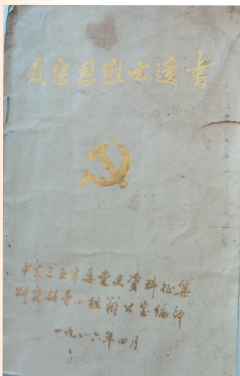 麦宏恩烈士遗書
中共三亚市委党史资料征集
研究领导小组办公室编印
一九八六年四月